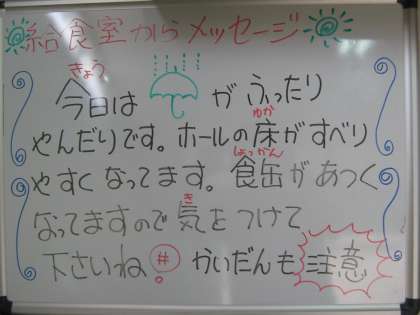 給食室からメッセージ
きょう
今日は が ふったり
ゆか
やんだりです。ホールの床がすべり
しょっかん
やすく なってます。食缶があつく
き
なってますので気をつけて
下さいね かいだんも 注意